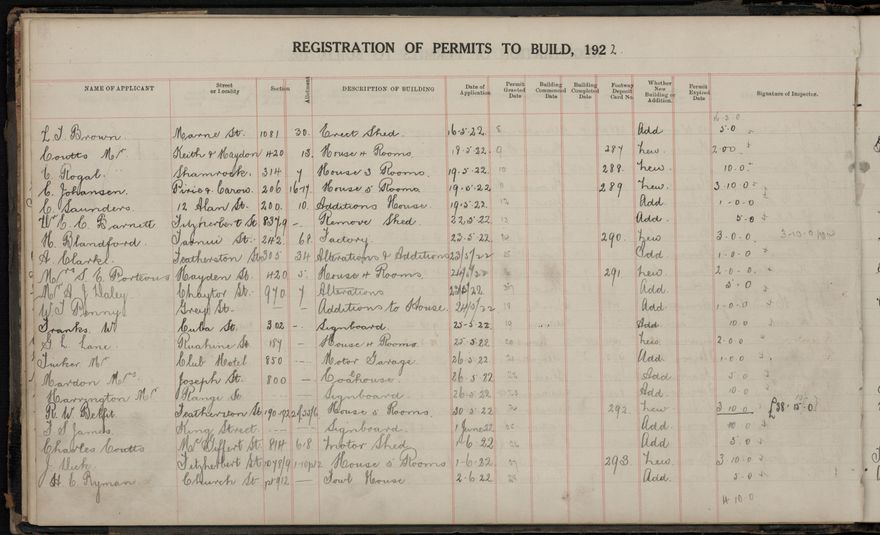 REGISTRATION OF PERMITS TO BUILD, 1922.
NAME OF APPLICANT Street or Locality Section Allotment DESCRIPTION OF BUILDING Date of Application Permit Granted Date Building Commenced Date Building Completed Date Footway Deposit Card No. Whether New Building or Addition. Permit Expired Date Signature of Inspector.
L. J. Brown. Marne St. 1081 30. Erect Shed. 16.5.22. 8 Add 5.0
Coutts Mr. Keith & Haydon 420 13. House 4 Rooms. 18.5.22. 9 287 New. 2.0.0.
C. Rogal. Shamrock. 314 7 House 3 Rooms. 19.5.22. 10 288. New. 10.0
C. Johansen. Pirie & Carow. 206 16-17. House 5 Rooms 19.5.22 11 289 New. 3.10.0
C. Saunders. 12 Alan St. 200. 10. Additions House. 19.5.22. 12 Add 1.0.0
W. C. C. Barnett Fitzherbert St. 837.9 — Remove Shed. 22.5.22 13 Add. 5.0
H. Blandford. Tainui St. 242. 68. Factory. 23.5.22. 290. New 3.0.0.
A Clarke. Featherston St 305 34 Alterations & Additions 23/5/22 15 Add 1.0.0
Mrs S. C. Porteous Hayden St. 420 5. House 4 Rooms. 24/5/22 291 New. 2.0.0.
Mr A J Daley. Chaytor St. 970 7 Alterations 23/5/22 Add. 5.0
W. J. Penny. Greig St. — — Additions to House. 24/5/22. 18 Add 1.0.0
Franks. W. Cuba St. 302 — Signboard. 25.5.22. 19 Add 10.0
G. L. Lane. Ruahine St. 187 — House 4 Rooms. 25.5.22. 20 New. 2.0.0
Tucker Mr Club Hotel 850 — Motor Garage. 26.5.22. Add. 1.0.0
Mardon Mrs Joseph St. 800 — Coalhouse. 26.5.22 Add 5.0
Harrington Mr Range St Signboard. 26.5.22. Add. 10.0
R. W. Belfit. Featherston St. House 5 Rooms. 30.5.22. 292. New 3.10.0 £38.15.0
J. S. James. King Street — Signboard. 1 June 22. Add. 10.0
Charles Coutts 814 618 Motor Shed. 1.6.22. Add 5.0
J. Fitzherbert St. 1078/9 House 5 Rooms 1.6.22. 293. New. 3.10.0
H C Ryman Church St. pt 912 — Fowl House 2.6.22 Add. 5.0
4.10.0